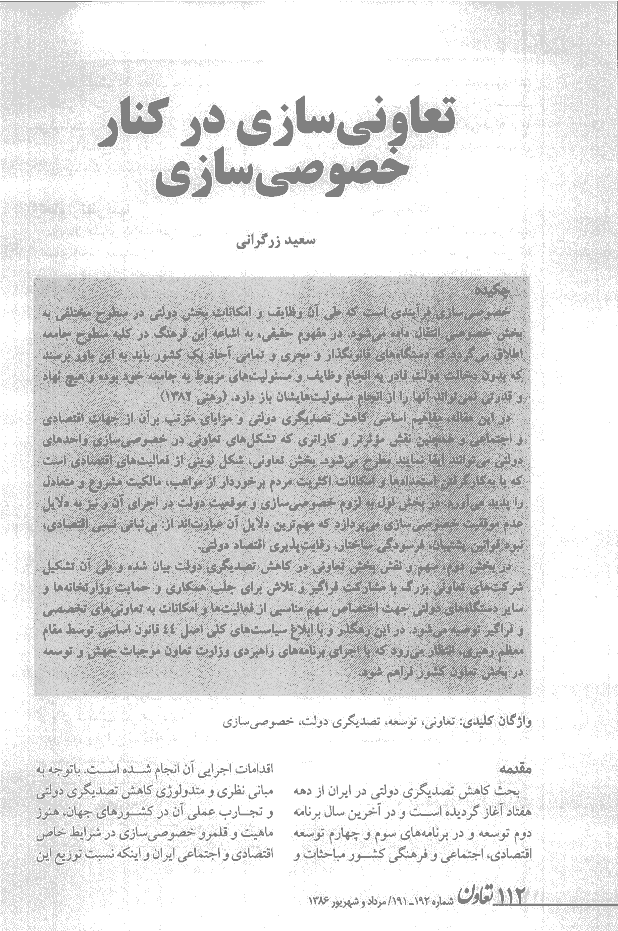 تعاونی‌سازی در کنار
خصوصی‌سازی
سعید زرگرانی
چکیده
خصوصی‌سازی فرآیندی است که طی آن وظایف و امکانات بخش دولتی در سطوح مختلفی به
بخش خصوصی انتقال داده می‌شود. در مفهوم حقیقی، به اشاعه این فرهنگ در کلیه سطوح جامعه
اطلاق می‌گردد که دستگاه‌های قانونگذار و مجری و تمامی آحاد یک کشور باید به این باور برسند
که بدون دخالت دولت قادر به انجام وظایف و مسئولیت‌های مربوط به جامعه خود بوده و هیچ نهاد
و قدرتی نمی‌تواند آنها را از انجام مسئولیت‌هایشان باز دارد. (رهنی ۱۳۸۲)
در این مقاله، مفاهیم اساسی کاهش تصدیگری دولتی و مزایای مترتب برآن از جهات اقتصادی
و اجتماعی و همچنین نقش مؤثرتر و کاراتری که تشکل‌های تعاونی در خصوصی‌سازی واحدهای
دولتی می‌توانند ایفا نمایند مطرح می‌شود. بخش تعاونی، شکل نوینی از فعالیت‌های اقتصادی است
که با به‌کارگرفتن استعدادها و امکانات اکثریت مردم برخوردار از مواهب، مالکیت مشروع و متعادل
را پدید می‌آورد. در بخش اول به لزوم خصوصی‌سازی و موقعیت دولت در اجرای آن و نیز به دلایل
عدم موفقیت خصوصی‌سازی می‌پردازد که مهم‌ترین دلایل آن عبارت‌اند از: بی‌ثباتی نسبی اقتصادی،
نبود قوانین پشتیبان، فرسودگی ساختار، رقابت‌پذیری اقتصاد دولتی.
در بخش دوم، سهم و نقش بخش تعاونی در کاهش تصدیگری دولت بیان شده و طی آن تشکیل
شرکت‌های تعاونی بزرگ با مشارکت فراگیر و تلاش برای جلب همکاری و حمایت وزارتخانه‌ها و
سایر دستگاه‌های دولتی جهت اختصاص سهم مناسبی از فعالیت‌ها و امکانات به تعاونی‌های تخصصی
و فراگیر توصیه می‌شود. در این رهگذر و با ابلاغ سیاست‌های کلی اصل ٤٤ قانون اساسی توسط مقام
معظم رهبری، انتظار می‌رود که با اجرای برنامه‌های راهبردی وزارت تعاون موجبات جهش و توسعه
در بخش تعاون کشور فراهم شود.
واژگان کلیدی: تعاونی، توسعه، تصدیگری دولت، خصوصی‌سازی
مقدمه
بحث کاهش تصدیگری دولتی در ایران از دهه
هفتاد آغاز گردیده است و در آخرین سال برنامه
دوم توسعه و در برنامه‌های سوم و چهارم توسعه
اقتصادی، اجتماعی و فرهنگی کشور مباحثات و
اقدامات اجرایی آن انجام شده است. باتوجه به
مبانی نظری و متدولوژی کاهش تصدیگری دولتی
و تجارب عملی آن در کشورهای جهان، هنوز
ماهیت و قلمرو خصوصی‌سازی در شرایط خاص
اقتصادی و اجتماعی ایران و اینکه نسبت توزیع این
۱۱۲ تعاون شماره ۱۹۲ـ۱۹۱/ مرداد و شهریور ۱۳۸۶